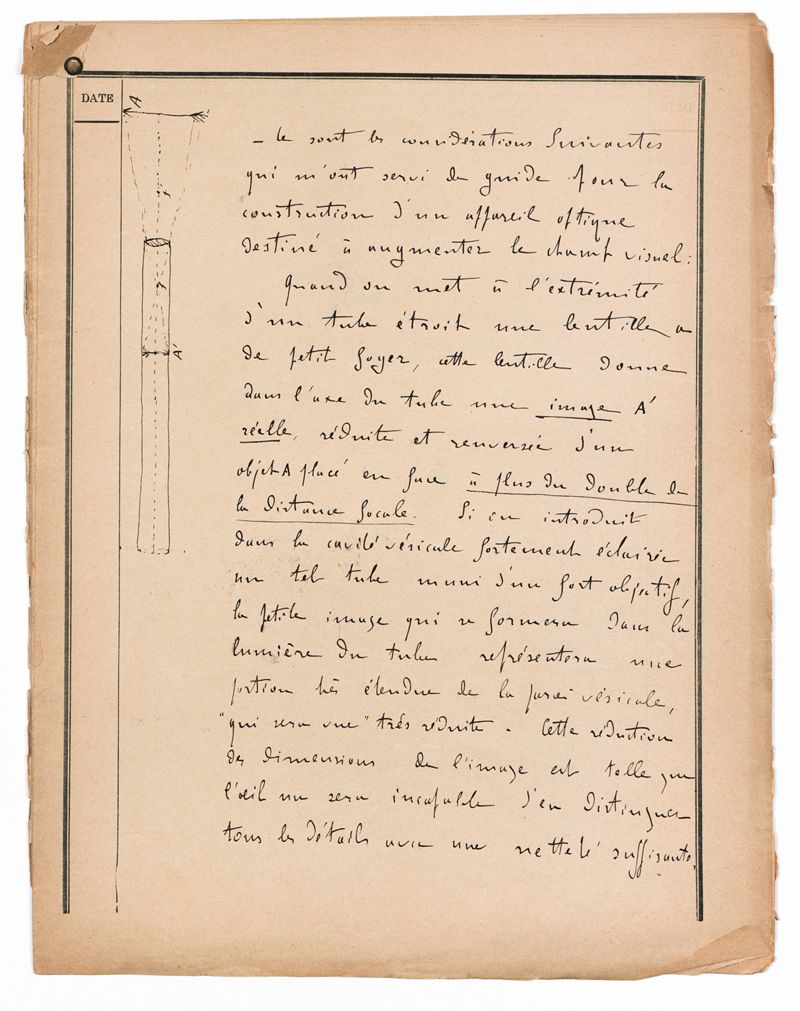 DATE
A
f
f
A'
– Ce sont les considérations suivantes
qui m'ont servi de guide pour la
construction d'un appareil optique
destiné à augmenter le champ visuel:
Quand on met à l'extrémité
d'un tube étroit une lentille
de petit foyer, cette lentille donne
dans l'axe du tube une image A'
réelle, réduite et renversée d'un
objet A placé en face à plus du double de
la distance focale. Si on introduit
dans la cavité vésicale fortement éclairée
un tel tube muni d'un fort objectif,
la petite image qui se formera dans la
lumière du tube représentera une
portion très étendue de la paroi vésicale,
"qui sera vue" très réduite. Cette réduction
des dimensions de l'image est telle que
l'œil nu sera incapable d'en distinguer
tous les détails avec une netteté suffisante.